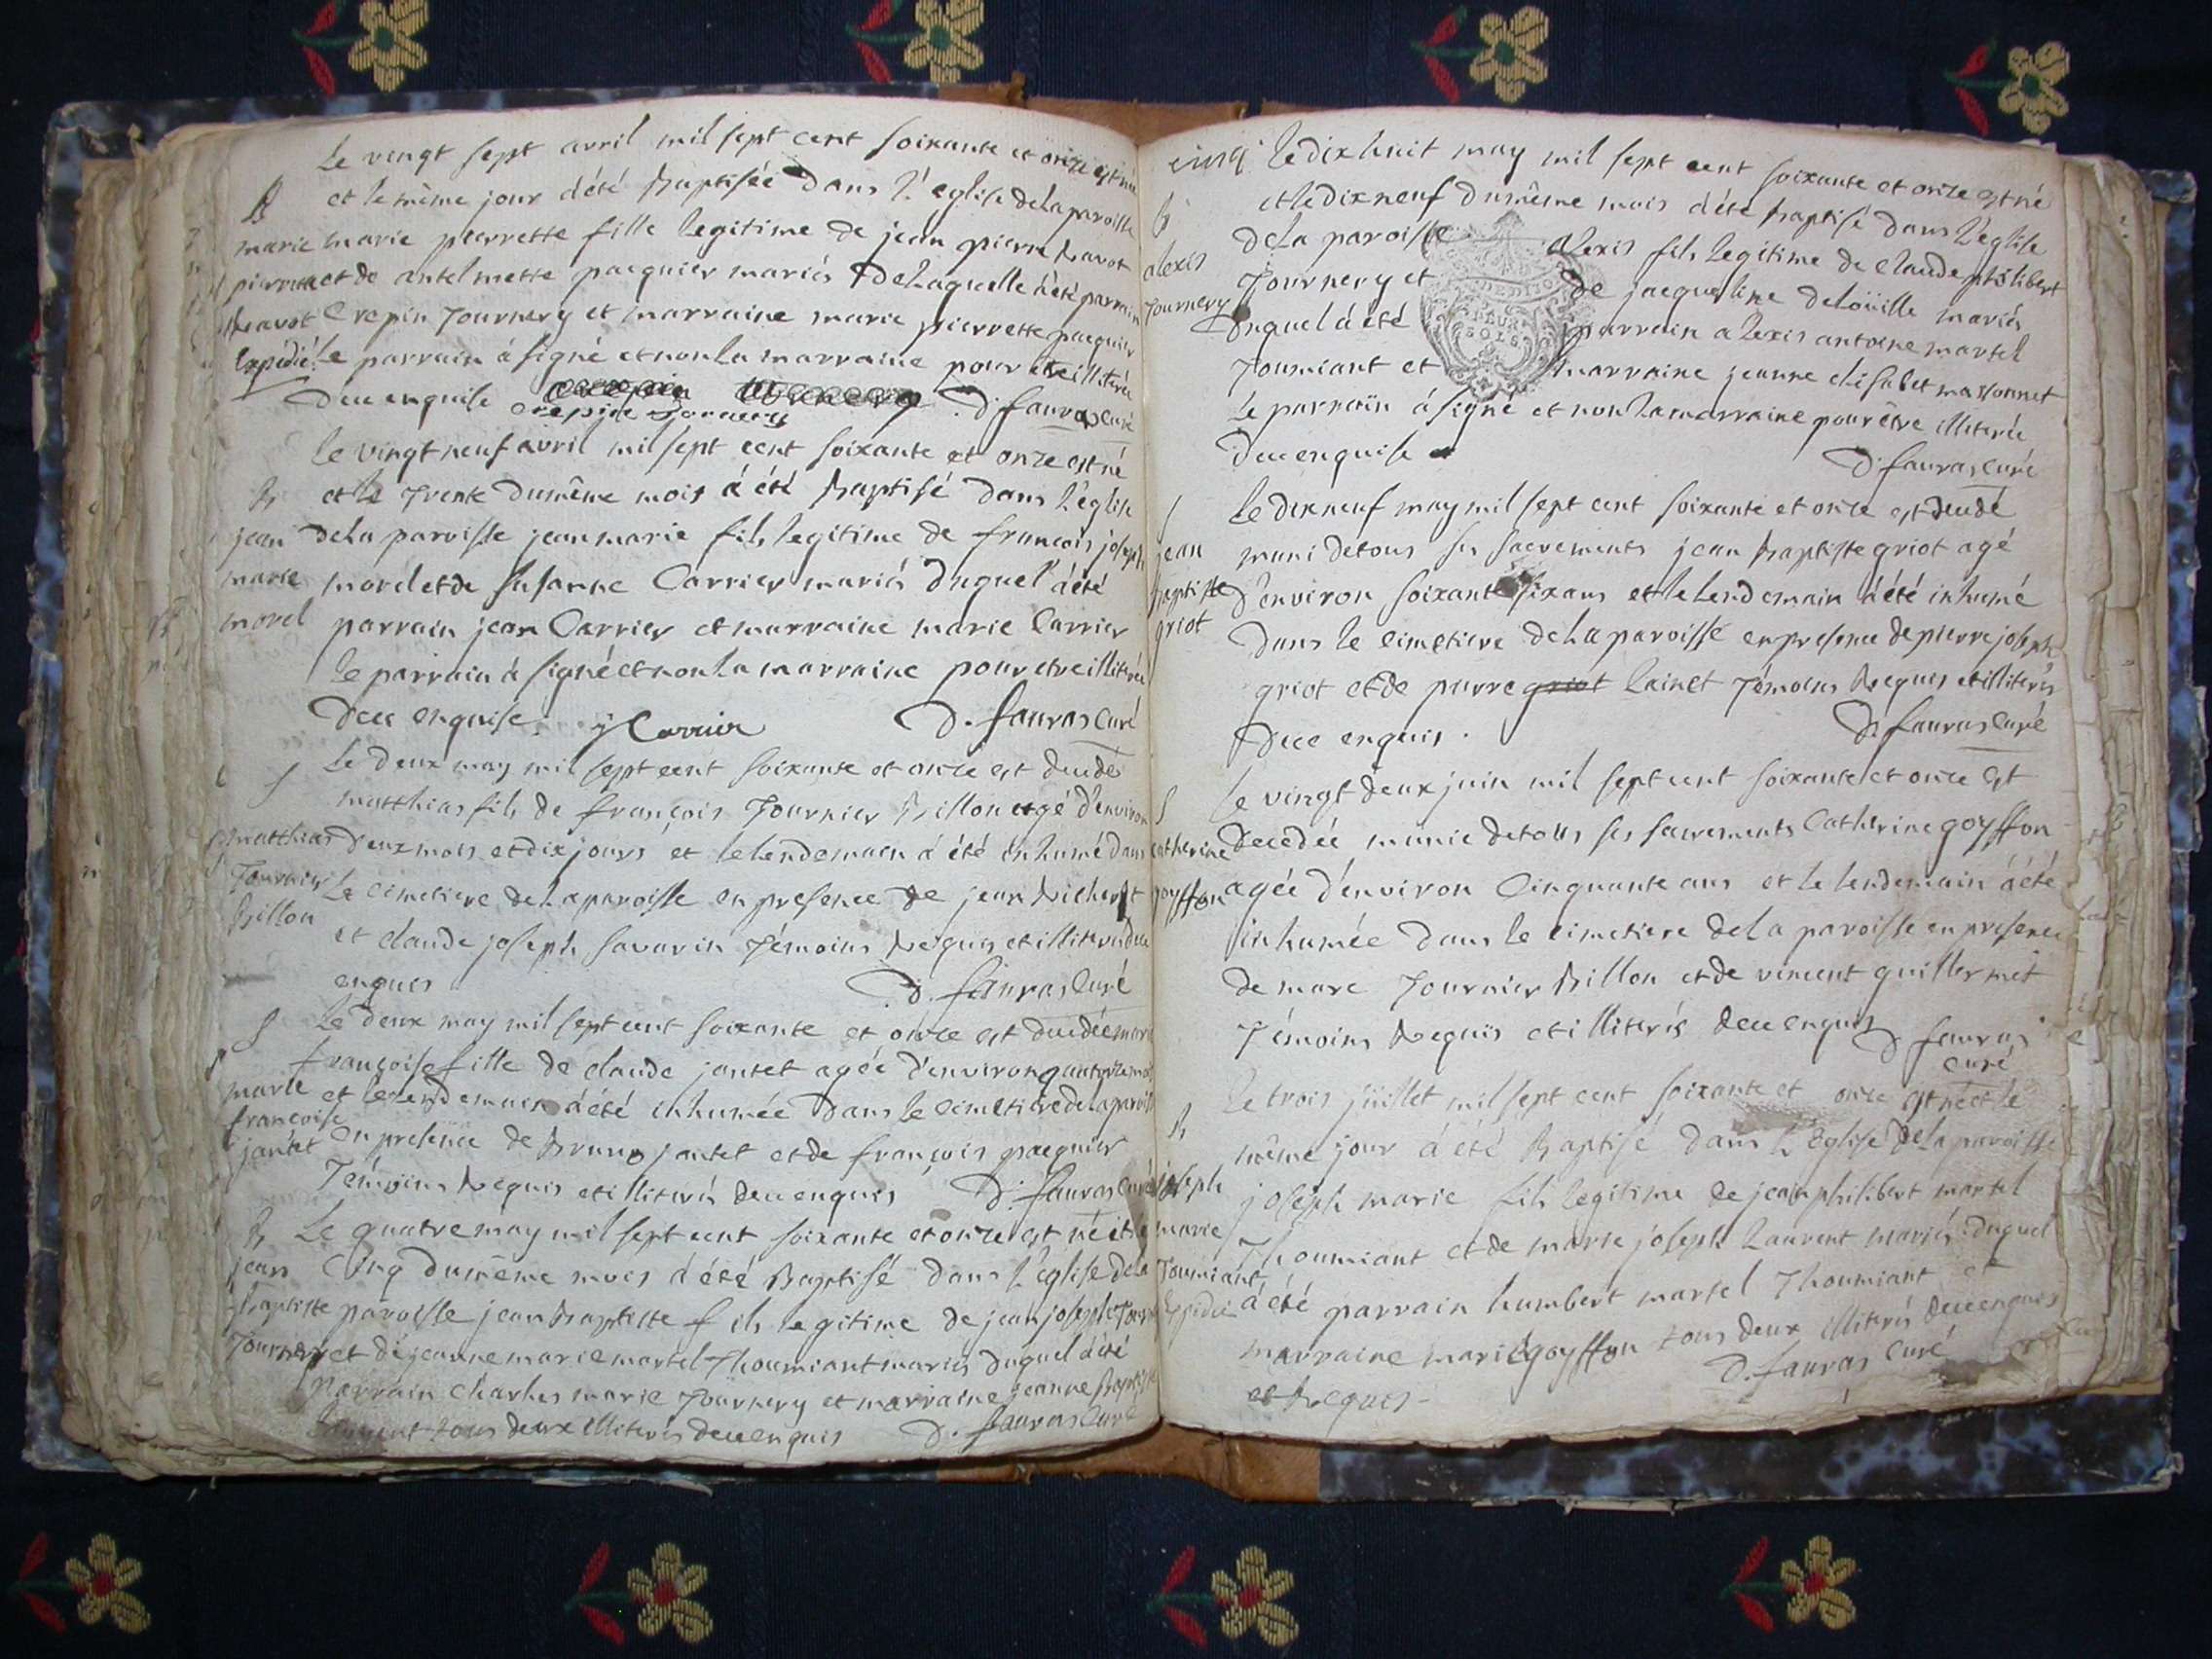 Le vingt sept avril mil sept cent soixante et onze est née
B et le même jour à été Baptisée dans l'église de la paroisse
marie marie pierrette fille legitime de jean pierre
pierrette et de antelmette pacquier mariés de laquelle à été parrain
Crepin Tournery et marraine marie pierrette pacquier
Expédié le parrain à signé et non la marraine pour etre illiterée
de ce enquise D. fauras curé
crepin Tornery
le vingt neuf avril mil sept cent soixante et onze est né
B et le Trente du même mois à été Baptisé dans l'église
jean de la paroisse jean marie fils legitime de francois joseph
marie morel et de susanne Carrier mariés duquel à été
morel parrain jean Carrier et marraine marie Carrier
le parrain à signé et non la marraine pour etre illiterée
de ce enquise. j Carrier D. fauras curé
le deux may mil sept cent soixante et onze est decedé
S matthias fils de françois Tournier Billon agé d'environ
matthias deux mois et dix jours et le lendemain à été inhumé dans
Tournier le cimetiere de la paroisse en presence de jean
Billon et claude joseph savarin Témoins Requis et illiterés de ce
enquis D. fauras curé
S Le deux may mil sept cent soixante et onze est decedée marie
françoise fille de claude jantet agée d'environ quatorze mois
marie et le lendemain à été inhumée dans le cimetiere de la paroisse
françoise
jantet en presence de Bruno jantet et de françois pacquier
Témoins Requis et illiterés de ce enquis D. fauras curé
B Le quatre may mil sept cent soixante et onze est né et le
jean Cinq du même mois à été Baptisé dans l'église de la
Baptiste paroisse jean Baptiste fils legitime de jean joseph
Tournery et de jeanne marie martel Thoumiant mariés duquel à été
parrain charles marie Tournery et marraine jeanne Baptiste
Laurent tous deux illiterés de ce enquis D. fauras curé
cinq le dix huit may mil sept cent soixante et onze est né
B et le dix neuf du même mois à été Baptisé dans l'église
alexis de la paroisse alexis fils legitime de claude philibert
Tournery Tournery et de jacqueline delouille mariés
duquel à été parrain alexis antoine martel
Toumiant et marraine jeanne elisabet massonnet
le parrain à signé et non la marraine pour être illiterée
de ce enquise
D. fauras curé
S le dix neuf may mil sept cent soixante et onze est decedé
jean muni de tous ses sacrements jean Baptiste griot agé
Baptiste d'environ soixante six ans et le lendemain à été inhumé
griot dans le cimetiere de la paroisse en presence de pierre joseph
griot et de pierre griot lainet Témoins Requis et illiterés
de ce enquis. D. fauras curé
S le vingt deux juin mil sept cent soixante et onze est
catherine decedée munie de tous ses sacrements Catherine goyffon
goyffon agée d'environ Cinquante ans et le lendemain à été
inhumée dans le cimetiere de la paroisse en presence
de marc Tournier Billon et de vincent guillermet
Témoins Requis et illiterés de ce enquis D. fauras
curé
le trois juillet mil sept cent soixante et onze est né et le
B même jour à été Baptisé dans l'église de la paroisse
joseph joseph marie fils legitime de jean philibert martel
marie Thoumiant et de marie joseph Laurent mariés duquel
Toumiant à été parrain humbert martel Thoumiant et
Expédié marraine marie goyffon tous deux illiterés de ce enquis
et Requis - D. fauras curé